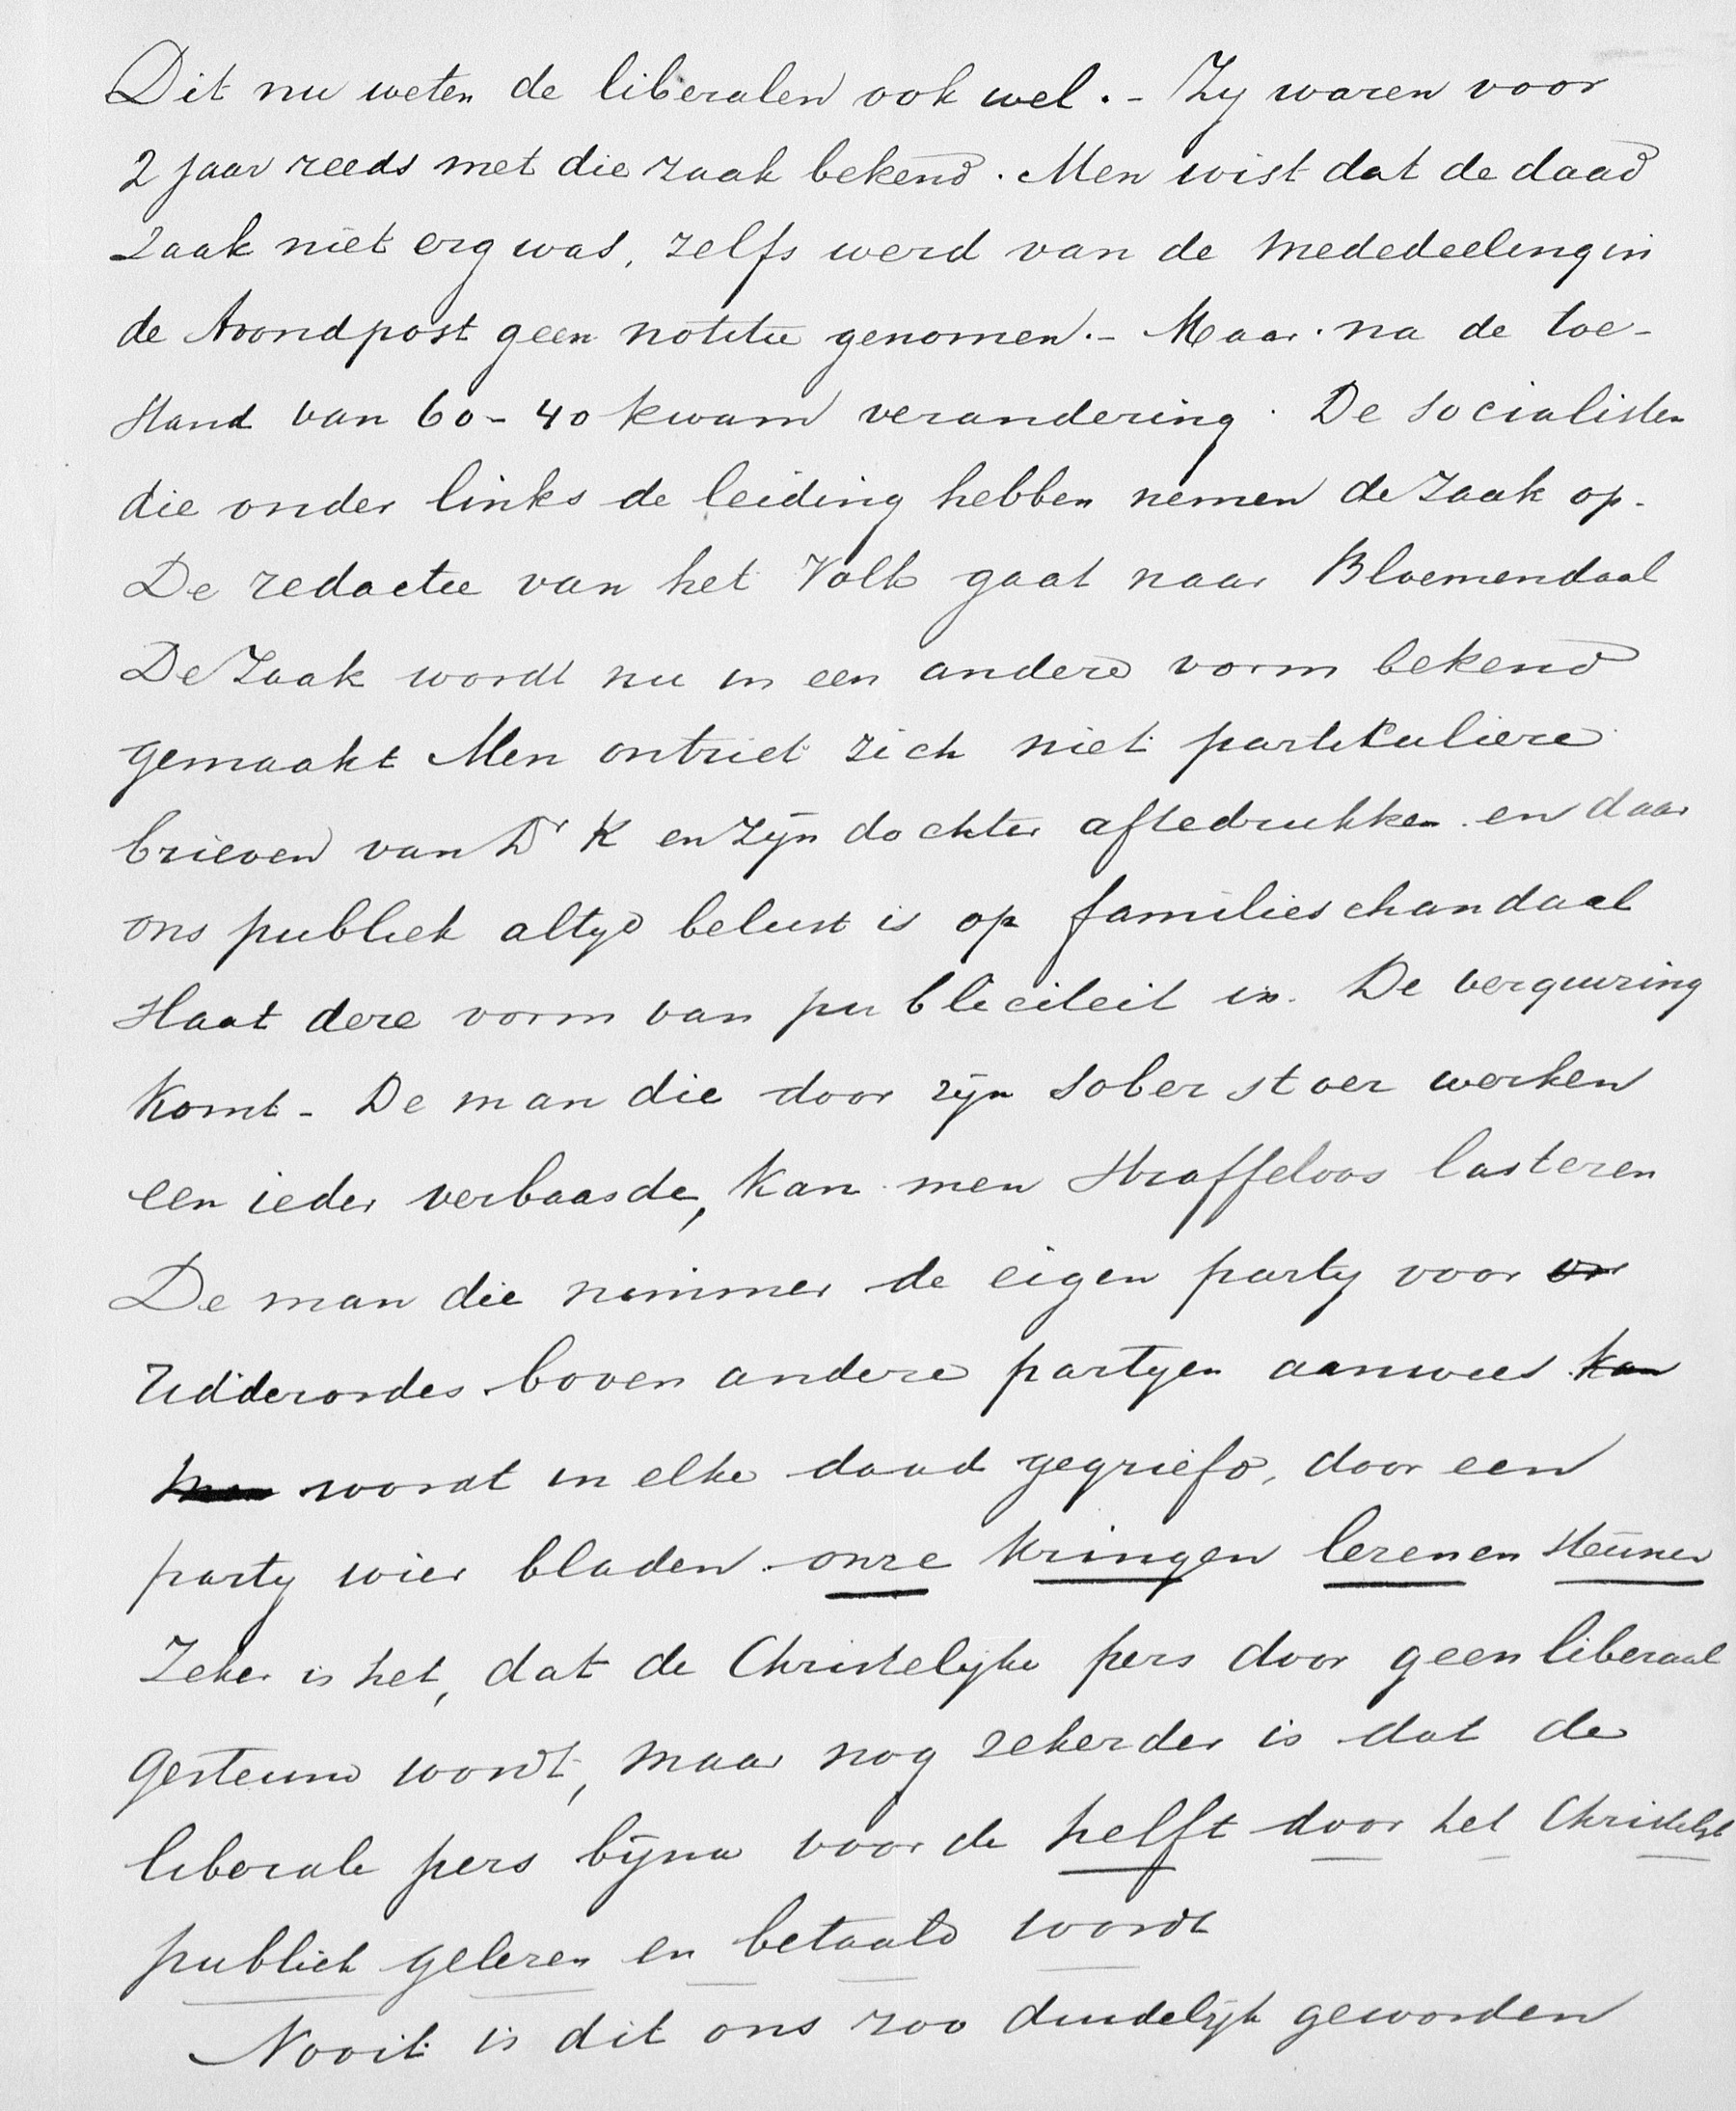 Dit nu weten de liberalen ook wel. - Zij waren voor
2 jaar reeds met die zaak bekend. Men wist dat de daad
zaak niet erg was, zelfs werd van de mededeeling in
de Avondpost geen notitie genomen. - Maar na de toe-
stand van 60-40 kwam verandering. De socialisten
die onder links de leiding hebben nemen de zaak op.
De redactie van het Volk gaat naar Bloemendaal
De zaak wordt nu in een andere vorm bekend
gemaakt Men ontziet zich niet partikuliere
brieven van Dr K en zijn dochter aftedrukken en daar
ons publiek altijd belust is op familieschandaal
slaat deze vorm van publiciteit in. De verguizing
komt - De man die door zijn sober stoer werken
een ieder verbaasde, kan men straffeloos lasteren
De man die nimmer de eigen partij voor or
ridderordes boven andere partijen aanwees kan
men wordt in elke daad gegriefd, door een
partij wier bladen onze kringen lezen en steunen
Zeker is het, dat de Christelijke pers door geen liberaal
gesteund wordt, maar nog zekerder is dat de
liberale pers bijna voor de helft door het Christelijk
publiek gelezen en betaald wordt
Nooit is dit ons zoo duidelijk geworden